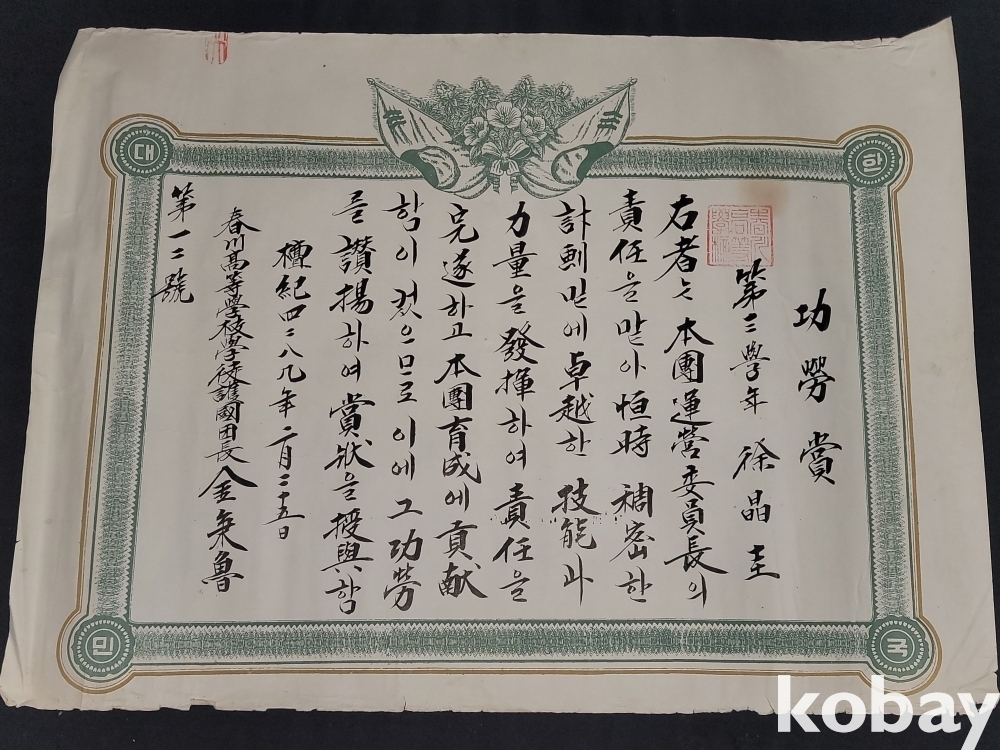 功勞賞
第三學年 徐晶圭
右者는 本團運營委員長의
責任을 맡아 恒時 稠密한
計劃 밑에 卓越한 技能과
力量을 發揮하여 責任을
完遂하고 本團育成에 貢献
함이 컸으므로 이에 그 功勞
를 讃揚하여 賞狀을 授與함
檀紀四二八九年 二月二十五日
春川高等學校學徒護國団長 金秉魯
第一二號
대
한
민
국
kobay